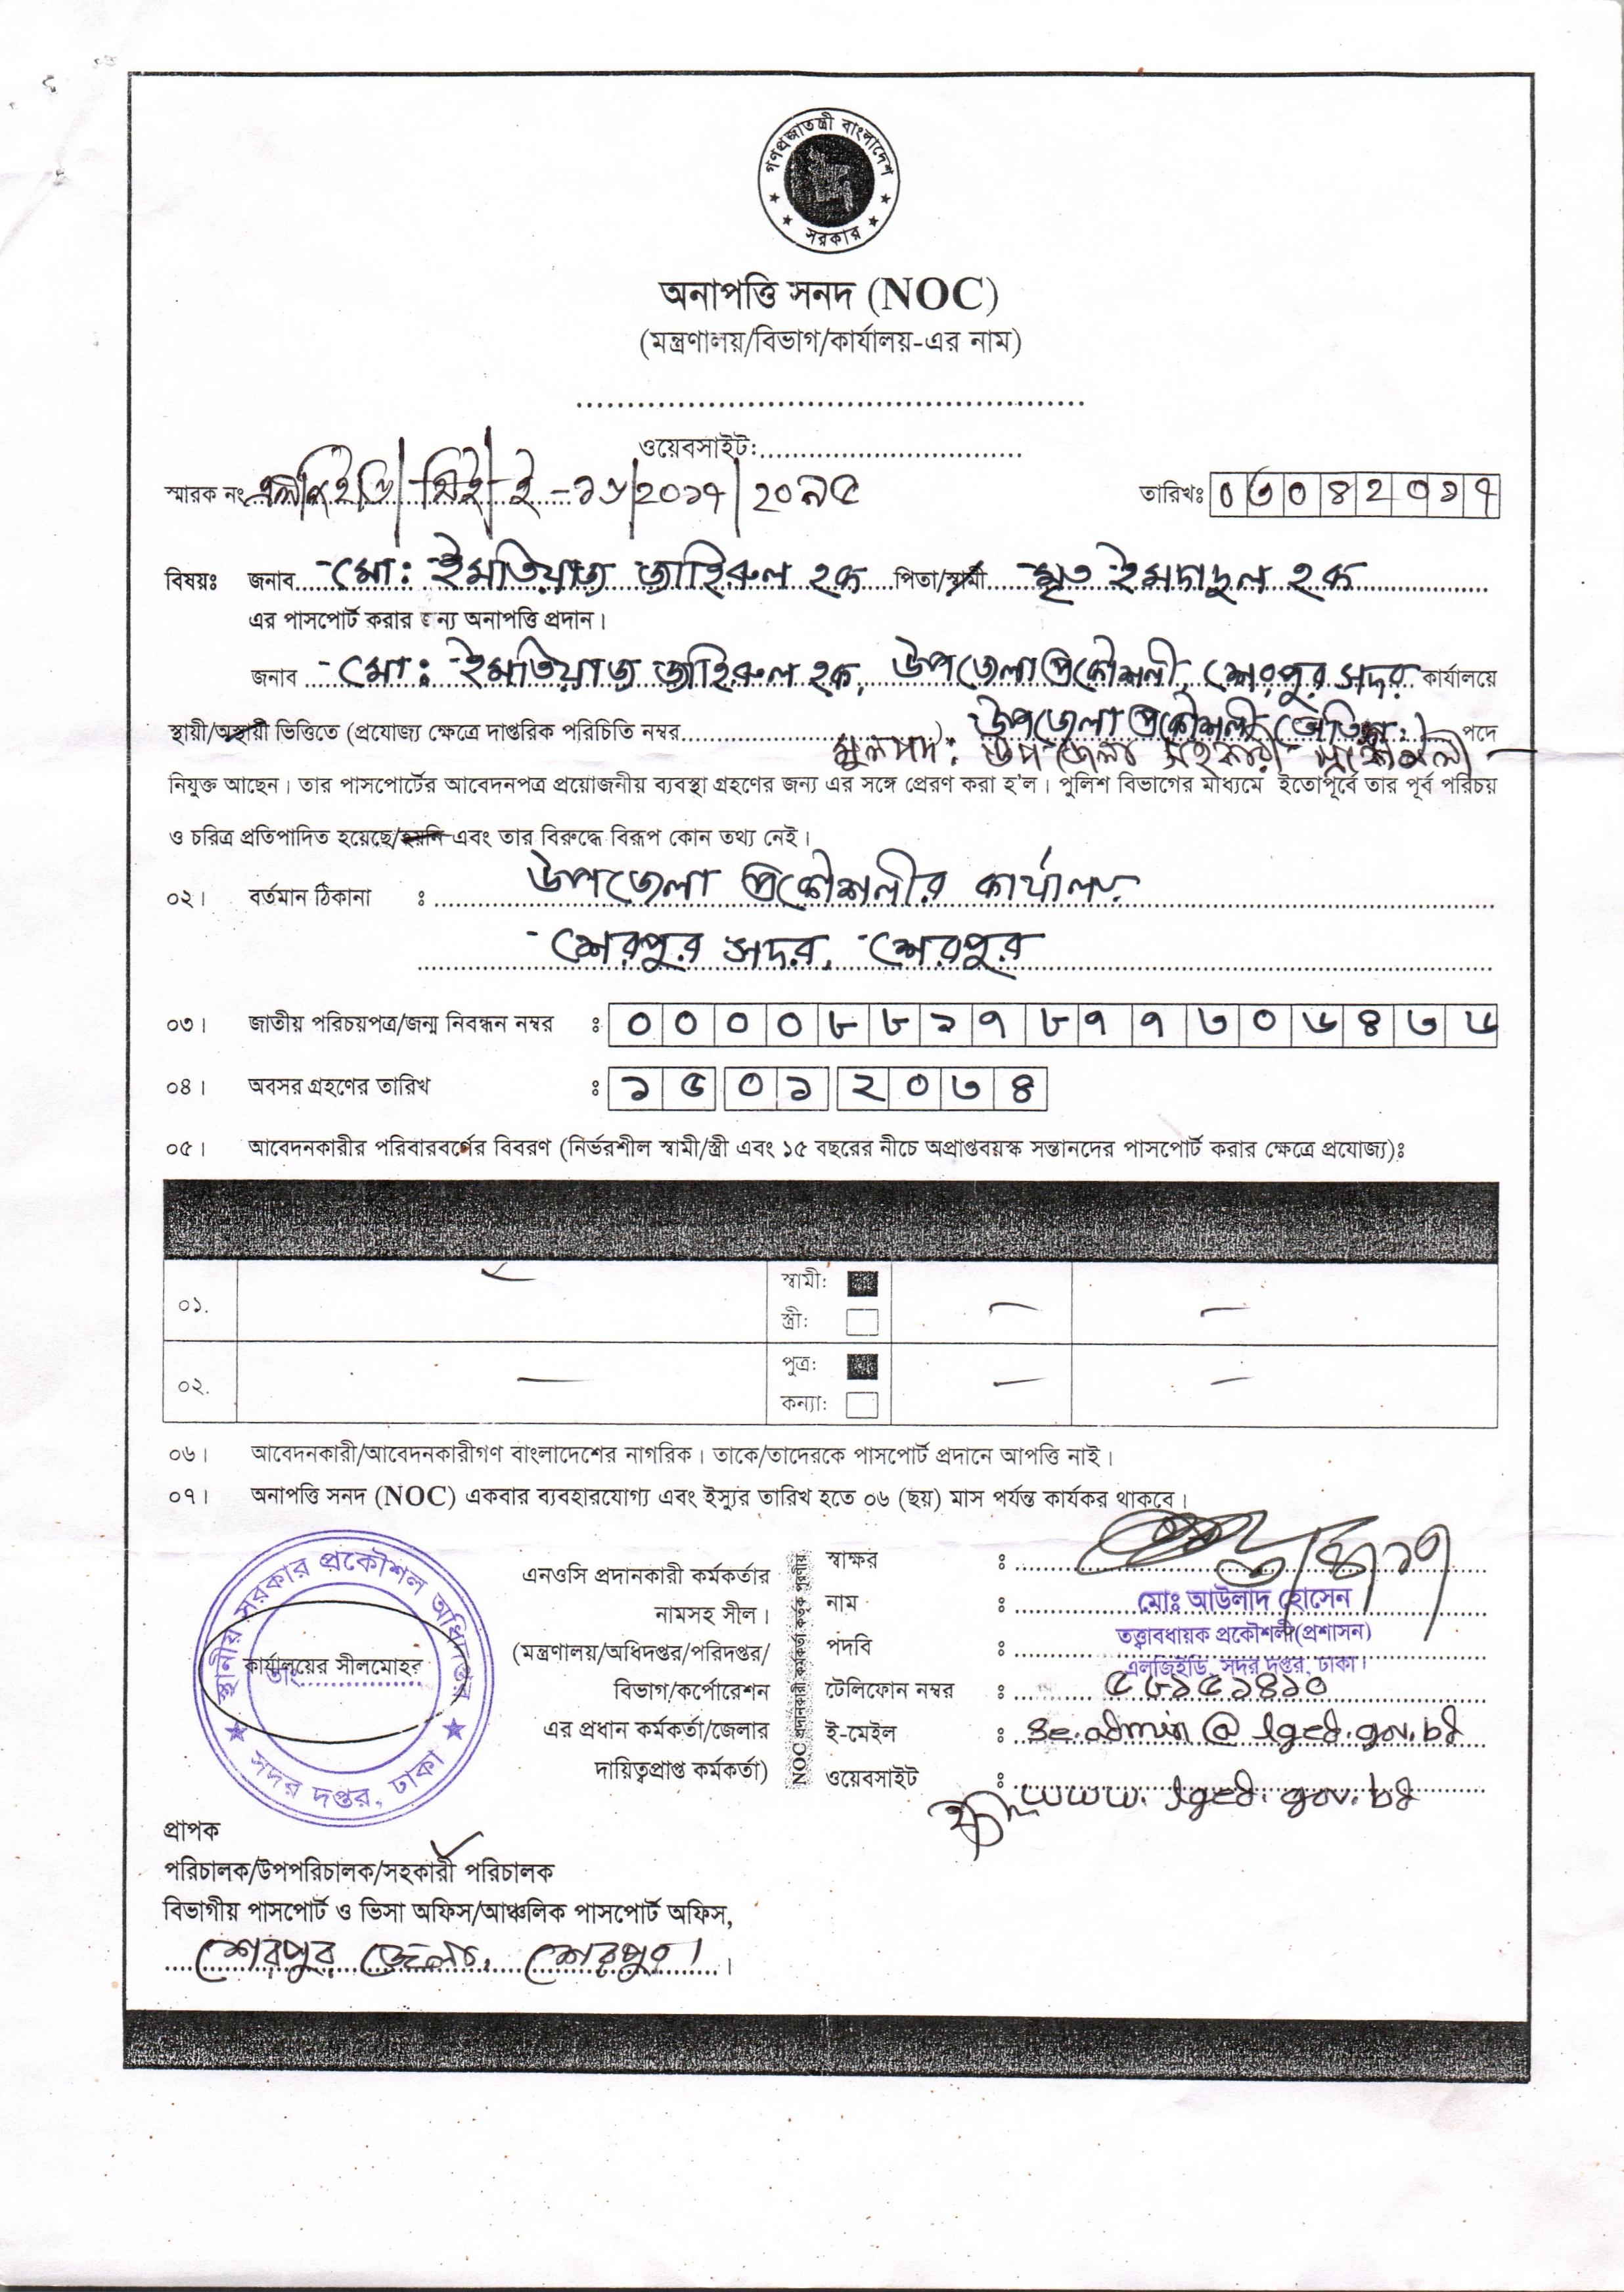 গণপ্রজাতন্ত্রী বাংলাদেশ সরকার
অনাপত্তি সনদ (NOC)
(মন্ত্রণালয়/বিভাগ/কার্যালয়-এর নাম)
ওয়েবসাইট:
স্মারক নং এলজিইডি/ /২০১৭/২০৯৫ তারিখঃ ০৩০৪২০১৭
বিষয়ঃ জনাব মো: ইমতিয়াজ জহিরুল হক পিতা/স্বামী মৃত ইমদাদুল হক
এর পাসপোর্ট করার জন্য অনাপত্তি প্রদান।
জনাব মো: ইমতিয়াজ জহিরুল হক, উপজেলা প্রকৌশলী, শেরপুর সদর কার্যালয়ে
স্থায়ী/অস্থায়ী ভিত্তিতে (প্রযোজ্য ক্ষেত্রে দাপ্তরিক পরিচিতি নম্বর) উপজেলা প্রকৌশলী পদে
মূলপদ: উপজেলা সহকারী প্রকৌশলী
নিযুক্ত আছেন। তার পাসপোর্টের আবেদনপত্র প্রয়োজনীয় ব্যবস্থা গ্রহণের জন্য এর সঙ্গে প্রেরণ করা হ'ল। পুলিশ বিভাগের মাধ্যমে ইতোপূর্বে তার পূর্ব পরিচয়
ও চরিত্র প্রতিপাদিত হয়েছে/হয়নি এবং তার বিরুদ্ধে বিরূপ কোন তথ্য নেই।
০২। বর্তমান ঠিকানা : উপজেলা প্রকৌশলীর কার্যালয়
শেরপুর সদর, শেরপুর
০৩। জাতীয় পরিচয়পত্র/জন্ম নিবন্ধন নম্বর ঃ ০০০০৮৮১৭৮৭৭৩০৬৪৩৬
০৪। অবসর গ্রহণের তারিখ ঃ ১৫০১২০৩৪
০৫। আবেদনকারীর পরিবারবর্গের বিবরণ (নির্ভরশীল স্বামী/স্ত্রী এবং ১৫ বছরের নীচে অপ্রাপ্তবয়স্ক সন্তানদের পাসপোর্ট করার ক্ষেত্রে প্রযোজ্য)ঃ
স্বামী:
০১.
স্ত্রী:
পুত্র:
০২.
কন্যা:
০৬। আবেদনকারী/আবেদনকারীগণ বাংলাদেশের নাগরিক। তাকে/তাদেরকে পাসপোর্ট প্রদানে আপত্তি নাই।
০৭। অনাপত্তি সনদ (NOC) একবার ব্যবহারযোগ্য এবং ইস্যুর তারিখ হতে ০৬ (ছয়) মাস পর্যন্ত কার্যকর থাকবে।
স্থানীয় সরকার প্রকৌশল অধিদপ্তর
কার্যালয়ের সীলমোহর
তাং
★ সদর দপ্তর, ঢাকা ★
এনওসি প্রদানকারী কর্মকর্তার
নামসহ সীল।
(মন্ত্রণালয়/অধিদপ্তর/পরিদপ্তর/
বিভাগ/কর্পোরেশন
এর প্রধান কর্মকর্তা/জেলার
দায়িত্বপ্রাপ্ত কর্মকর্তা)
NOC প্রদানকারী কর্মকর্তা কর্তৃক পূরণীয়
স্বাক্ষর : ৩/৪/১৭
নাম : মোঃ আউলাদ হোসেন
পদবি : তত্ত্বাবধায়ক প্রকৌশলী(প্রশাসন)
এলজিইডি, সদর দপ্তর, ঢাকা।
টেলিফোন নম্বর : ৫৮১৫১৪১০
ই-মেইল : se.admin@lged.gov.bd
ওয়েবসাইট : www.lged.gov.bd
প্রাপক
পরিচালক/উপপরিচালক/সহকারী পরিচালক
বিভাগীয় পাসপোর্ট ও ভিসা অফিস/আঞ্চলিক পাসপোর্ট অফিস,
শেরপুর জেলা, শেরপুর।